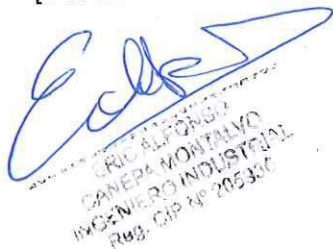 ERIC ALFONSO
CANEPA MONTALVO
INGENIERO INDUSTRIAL
Reg. CIP N°